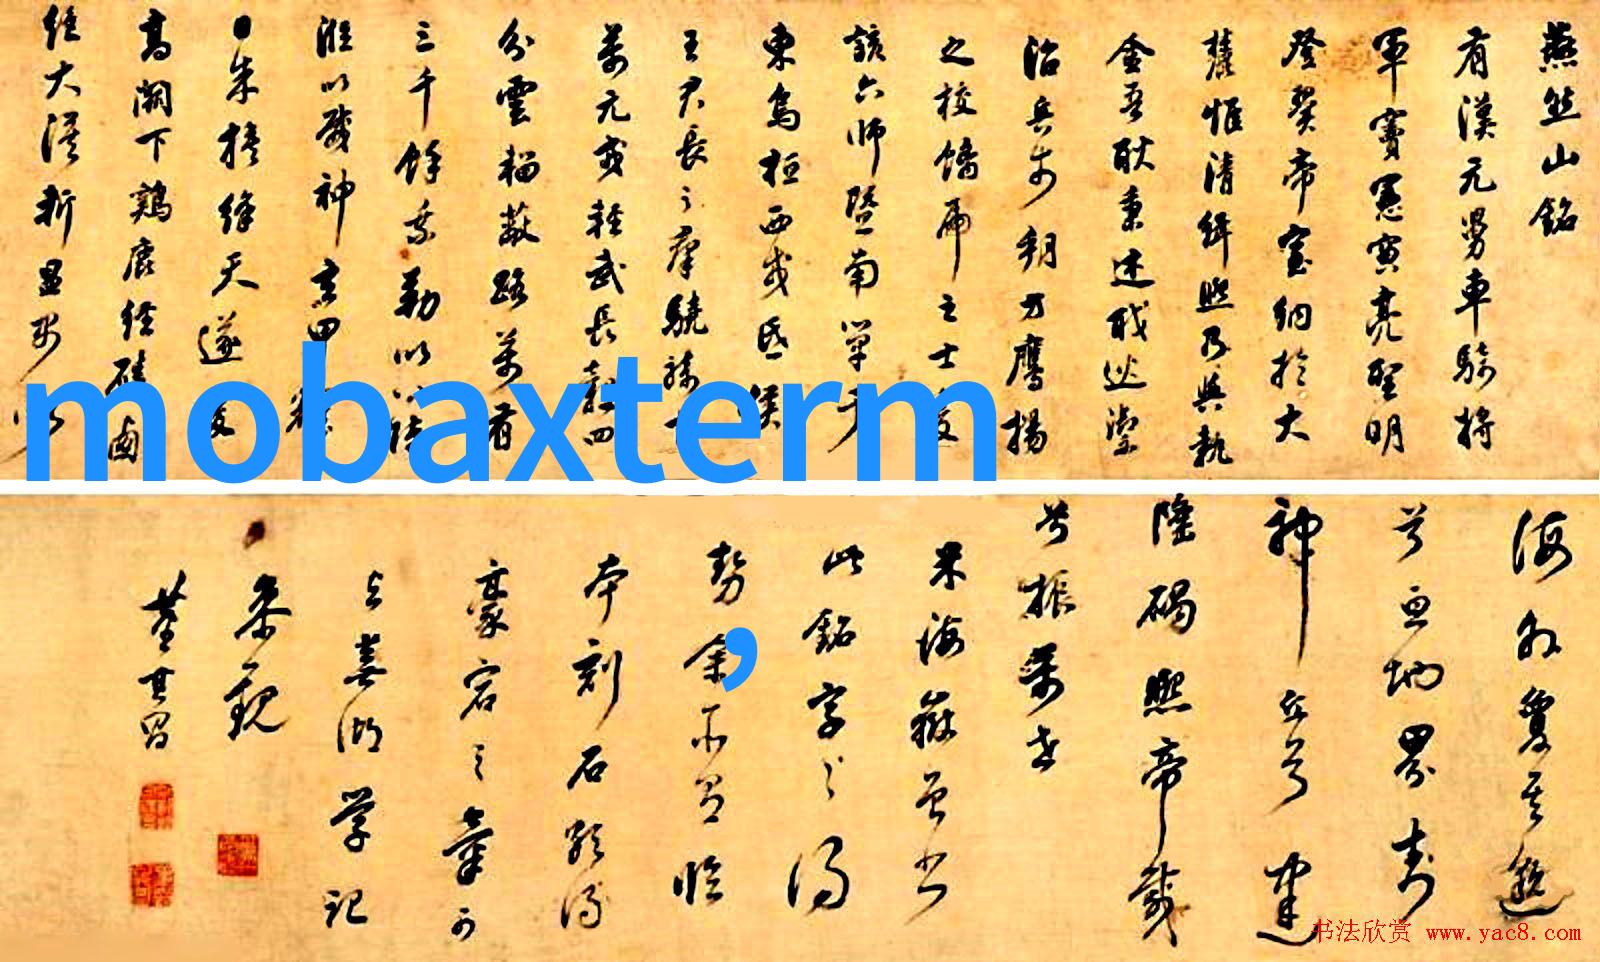 燕然山銘
有漢元舅車騎將
軍竇憲寅亮聖明
登翼帝室納於大
麓惟清緝熙乃與執
金吾耿秉述職巡禦
治兵於朔方鷹揚
之校螭虎之士爰
該六師暨南單于
東烏桓西戎氐侯
王君長之羣驍騎十
萬元戎輕武長轂四
分雲輜蔽路萬有
三千餘乘勒以八陣
涖以威神玄甲耀
日朱旗絳天遂凌
高闕下鷄鹿經磧鹵
經大漠斬溫禺以
mobaxterm
海外夐其邈
兮亘地界封
神丘兮建
隆碣熙帝載
兮振萬世
米海嶽曾書
此銘字之得
勢余不習臨
本刻石頗得
豪宕之可
与蕪湖学記
參觀
董其昌
,
书法欣赏 www.yac8.com